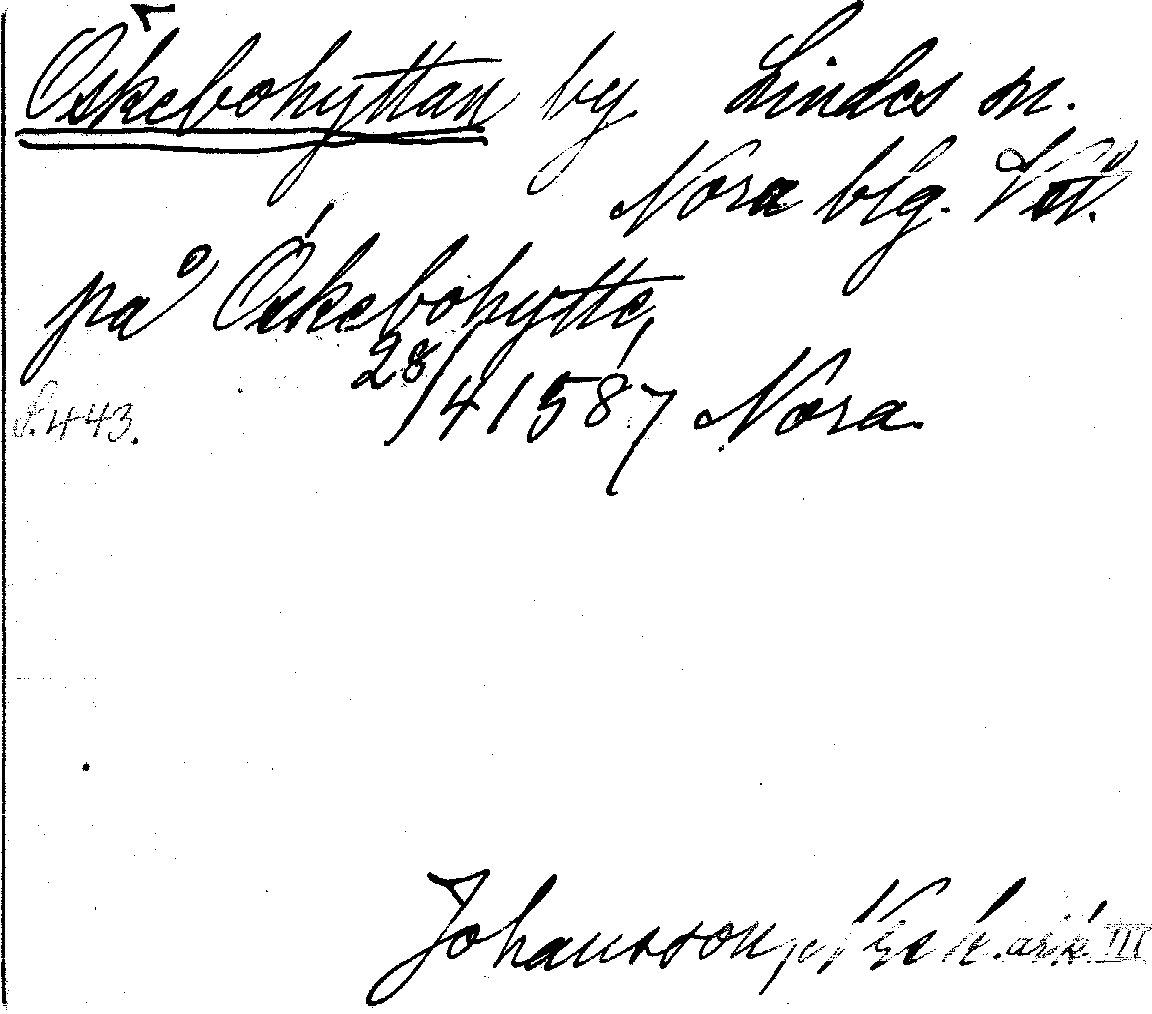 Öskebohyttan by Lindes sn.
Nora blg. Vstl.
på Öskebohytte,
28/4 1587 Nora.
S. 443.
Johansson, Nor. ark. III